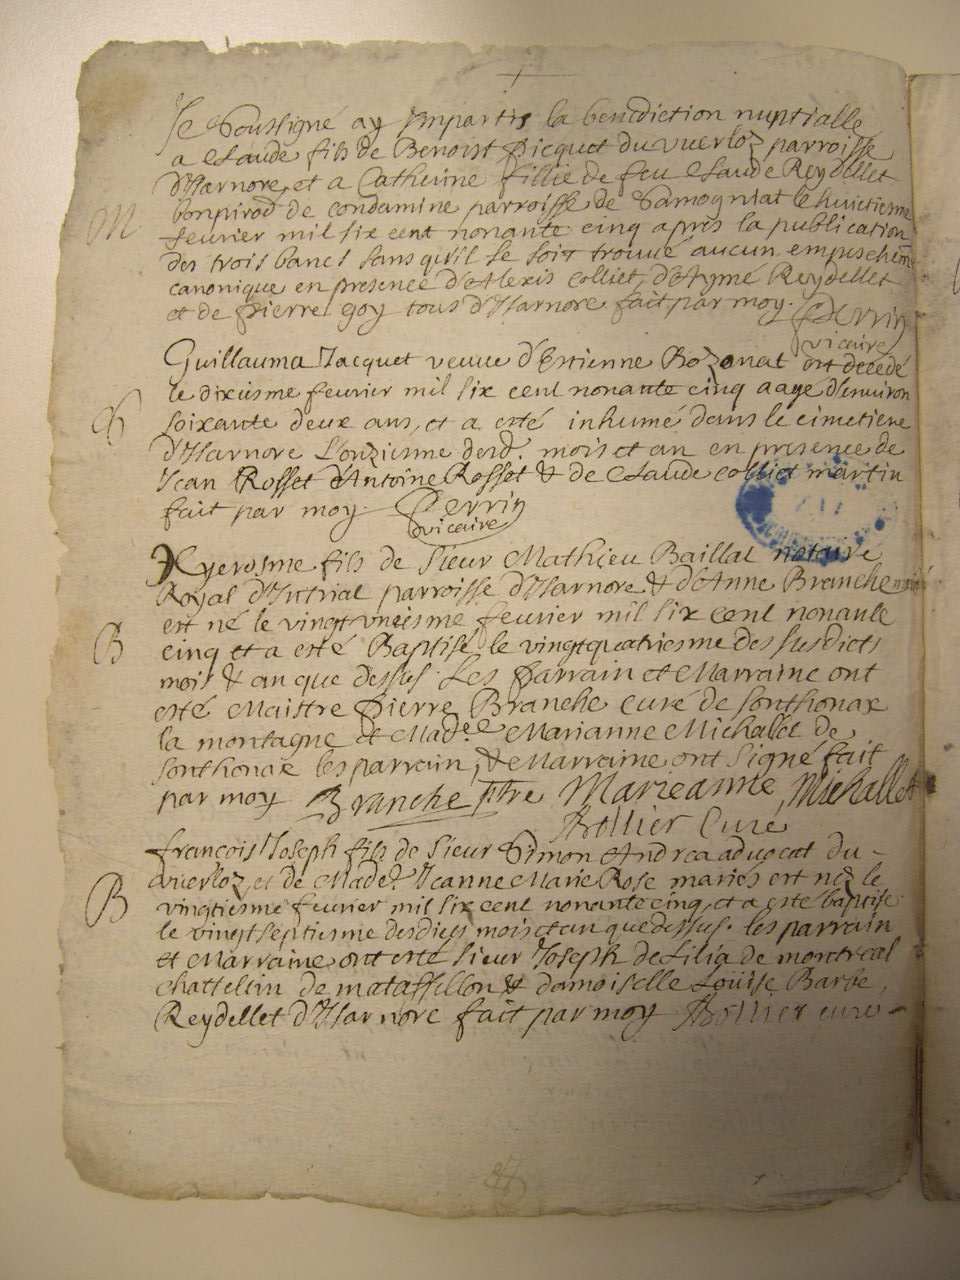 Je soussigné ay Jmpartis la benediction nuptialle
a Claude fils de Benoist Picquet du vuerloz parroisse
d'Isarnore, et a Catherine fillie de feu Claude Reydellet
bonpirod de condamine parroisse de Samogniat le huictiesme
M fevrier mil six cent nonante cinq apres la publication
des trois bancs sans qu'il se soit trouvé aucun empeschem
canonique en presence d'Alexis Colliet, d'Aymé Reydellet
et de Pierre goy tous d'Isarnore fait par moy. Perrin
vicaire
Guillauma Jacquet veuve d'Estienne Bozonat est decedé
le dixiesme fevrier mil six cent nonante cinq aagé d'environ
soixante deux ans, et a esté inhumé dans le cimetiere
d'Isarnore L'onziesme desd. mois et an en presence de
Jean Rosset d'Antoine Rosset & de Claude colliet martin
fait par moy. Perrin
vicaire
Hyerosme fils de Sieur Mathieu Baillat notaire
Royal d'Intriat parroisse d'Isarnore & d'Anne Branche mariés
est né le vingt uniesme fevrier mil six cent nonante
B cinq et a esté Baptisé le vingtquatriesme des susdicts
mois & an que dessus. Les Parrain et Marraine ont
esté Maistre Pierre Branche curé de sonthonax
la montagne et Made.lle Marianne Michalet de
sonthonax les parrain, & Marraine ont signé fait
par moy Branche ptre Marieanne Michallet
Bollier Curé
françois Joseph fils de Sieur Simon Andrea advocat du
vuerloz, et de Made.lle Jeanne Marie Rose mariés est nez le
B vingtiesme fevrier mil six cent nonante cinq, et a esté baptisé
le vingt septiesme desdicts mois et an que dessus. les parrain
et Marraine ont esté sieur Joseph de Lilia de montreal
chattellin de mataffellon & damoiselle Loüise Barbe,
Reydellet d'Isarnore fait par moy Bollier curé